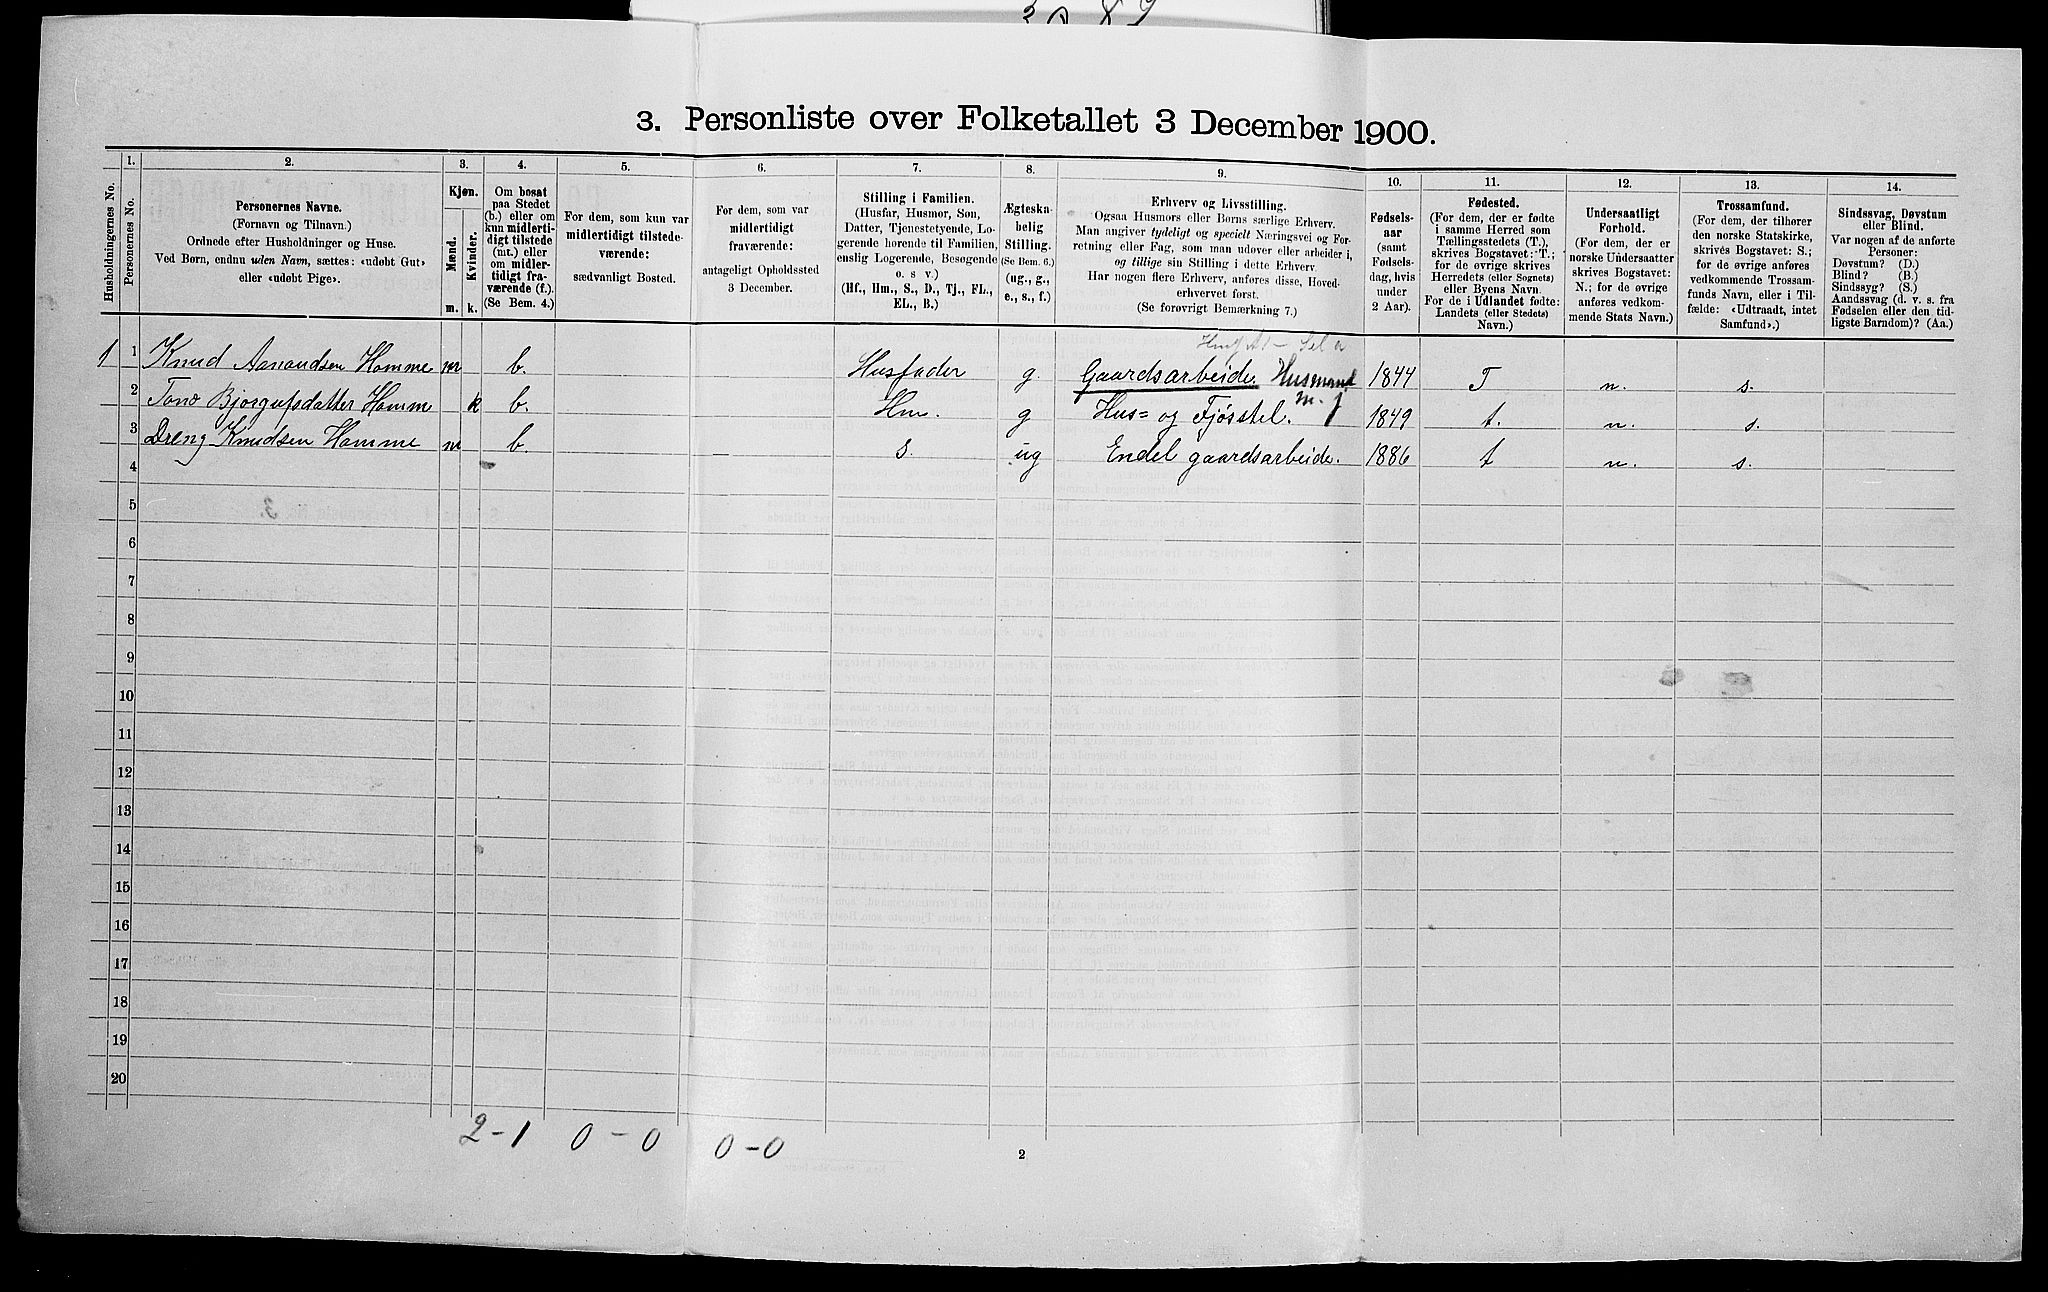 3. Personliste over Folketallet 3 December 1900.
Husholdningernes No.
1. Personernes No.
2.
Personernes Navne.
(Fornavn og Tilnavn.)
Ordnede efter Husholdninger og Huse.
Ved Børn, endnu uden Navn, sættes: «udøbt Gut»
eller «udøbt Pige».
3.
Kjøn.
Mænd.
Kvinder.
m. k.
4.
Om bosat
paa Stedet
(b.) eller om
kun midlerti-
digt tilstede
(mt.) eller
om midler-
tidigt fra-
værende (f.).
(Se Bem. 4.)
5.
For dem, som kun var
midlertidigt tilstede-
værende:
sædvanligt Bosted.
6.
For dem, som var
midlertidigt
fraværende:
antageligt Opholdssted
3 December.
7.
Stilling i Familien.
(Husfar, Husmor, Søn,
Datter, Tjenestetyende, Lo-
gerende hørende til Familien,
enslig Logerende, Besøgende
o. s v.)
(Hf., Hm., S., D., Tj., FL.,
EL., B.)
8.
Ægteska-
belig
Stilling.
(Se Bem. 6.)
(ug., g.,
e., s., f.)
9.
Erhverv og Livsstilling.
Ogsaa Husmors eller Børns særlige Erhverv.
Man angiver tydeligt og specielt Næringsvei og For-
retning eller Fag, som man udøver eller arbeider i,
og tillige sin Stilling i dette Erhverv.
Har nogen flere Erhverv, anføres disse, Hoved-
erhvervet først.
(Se forøvrigt Bemærkning 7.)
10.
Fødsels-
aar
(samt
Fødsels-
dag, hvis
under
2 Aar).
11.
Fødested.
(For dem, der er fødte
i samme Herred som
Tællingsstedets (T.),
skrives Bogstavet: T.;
for de øvrige skrives
Herredets (eller Sognets)
eller Byens Navn.
For de i Udlandet fødte:
Landets (eller Stedets)
Navn.)
12.
Undersaatligt
Forhold.
(For dem, der er
norske Undersaatter
skrives Bogstavet:
N.; for de øvrige
anføres vedkom-
mende Stats Navn.)
13.
Trossamfund.
(For dem, der tilhører
den norske Statskirke,
skrivés Bogstavet: S.;
for de øvrige anføres
vedkommende Trossam-
funds Navn, eller i Til-
fælde: «Udtraadt, intet
Samfund».)
14.
Sindssvag, Døvstum
eller Blind.
Var nogen af de anførte
Personer:
Døvstum? (D.)
Blind? (B.)
Sindssyg? (S.)
Aandssvag (d. v. s. fra
Fødselen eller den tid-
ligste Barndom)? (Aa.)
1 1 Knud Aanaudsen Homme m b. Husfader g. Gaardsarbeide. Husmand m. j 1844 T n. s.
2 Tone Bjørgufsdatter Homme k b. Hm. g Hus= og Fjøsstel. 1849 t. n. s.
3 Dreng Knudsen Homme m b. s. ug Endel gaardsarbeide. 1886 t n. s.
4
5
6
7
8
9
10
11
12
13
14
15
16
17
18
19
20
2-1 0-0 0-0
2